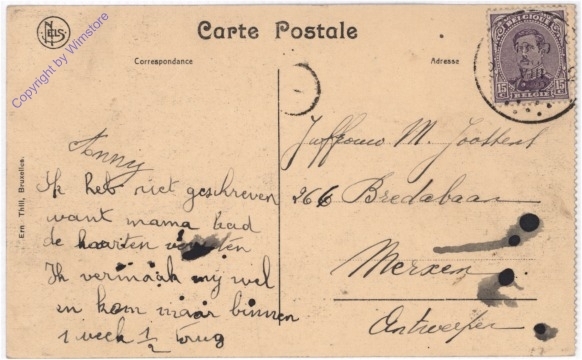 NELS
Carte Postale
Correspondance
Adresse
BELGIQUE
15 c 15 c
BELGIË
VIII
Copyright by Wimstore
Ern Thill, Bruxelles.
Anny
Ik heb niet geschreven
want mama had
de kaarten
Ik vermaak mij wel
en kom maar binnen
1 week 1/2 terug
Juffrouw M. Joostens
266 Bredabaan
Merxem
Antwerpen